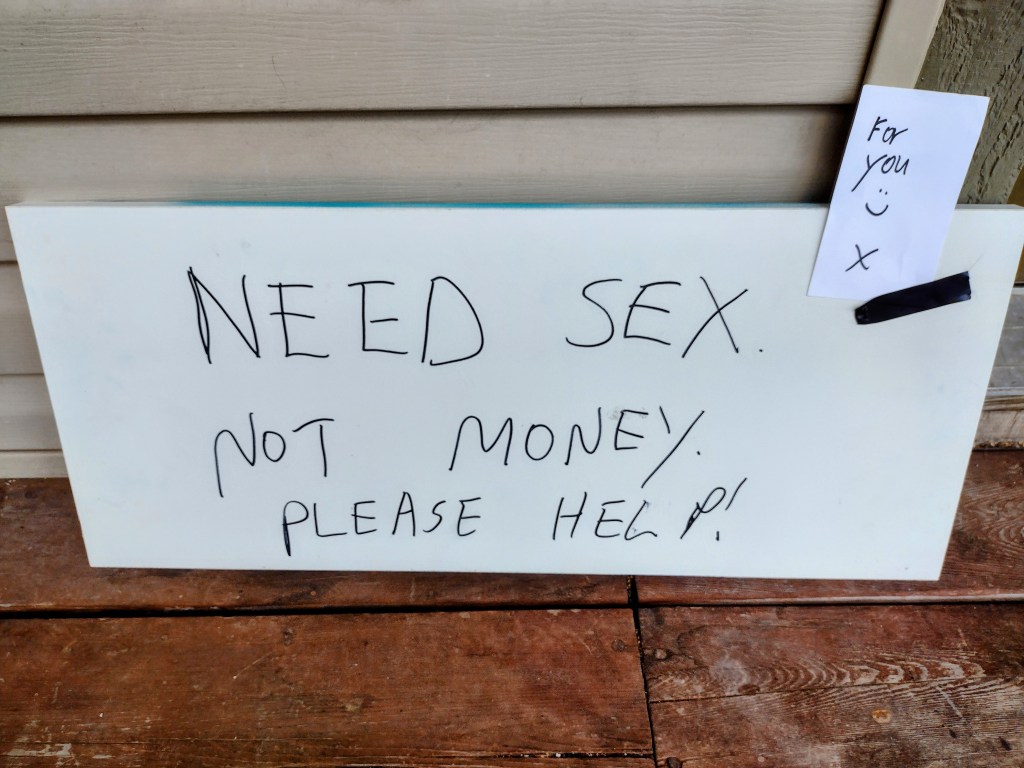 For
you
:)
X
NEED SEX.
NOT MONEY.
PLEASE HELP!